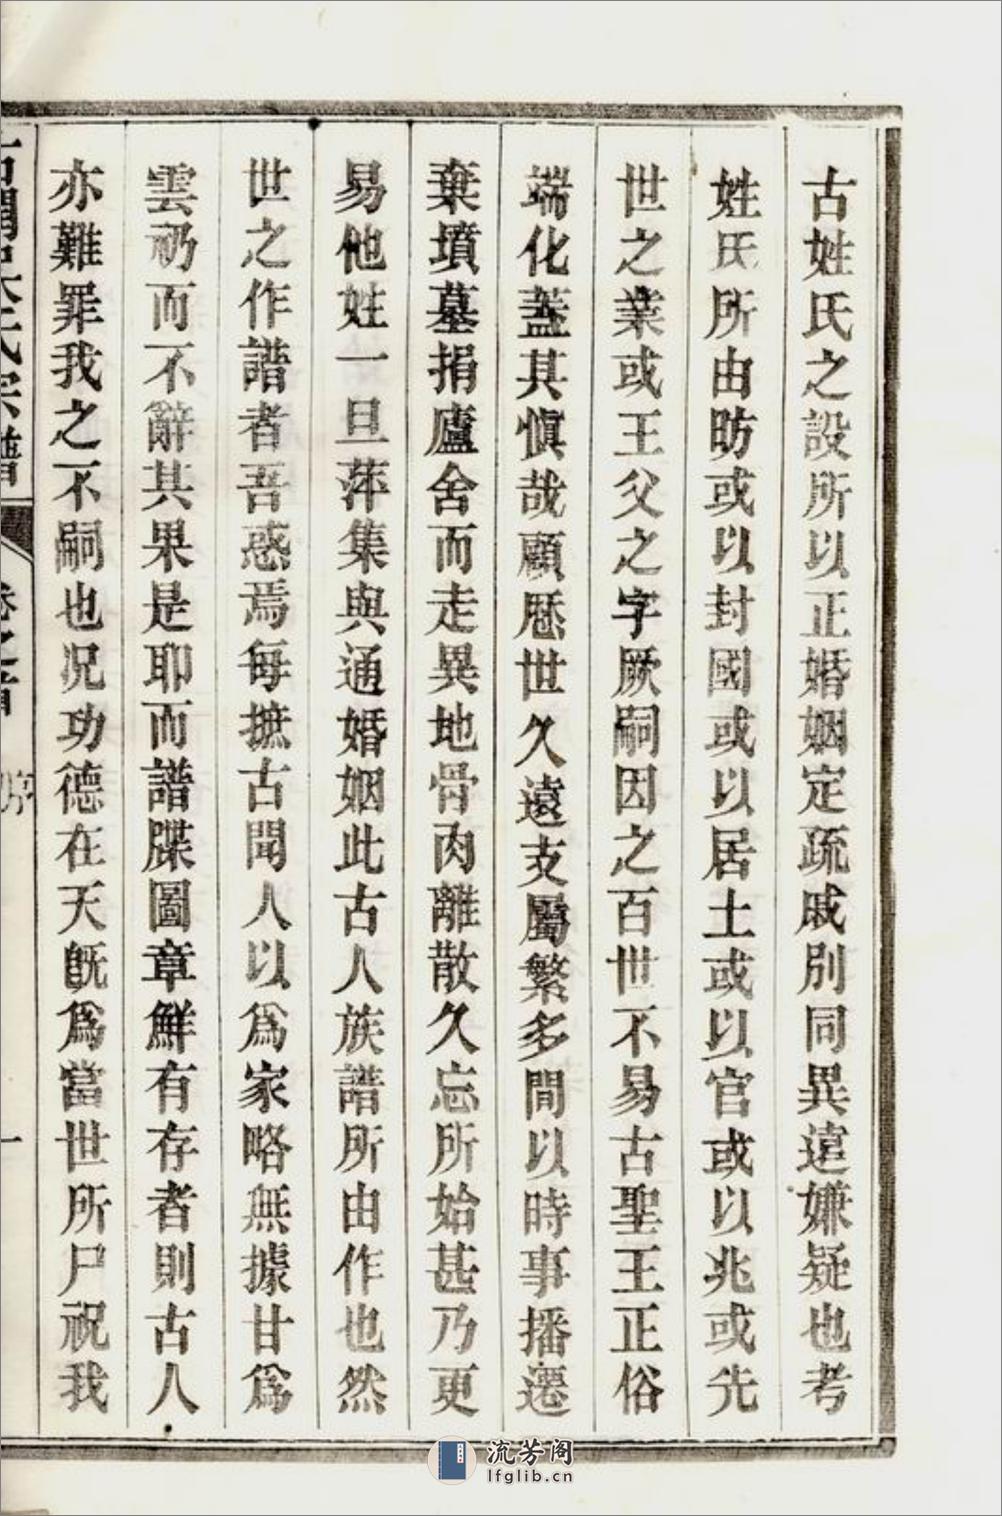 古姓氏之設所以正婚姻定疏戚別同異遠嫌疑也考
姓氏所由昉或以封國或以居土或以官或以兆或先
世之業或王父之字厥嗣因之百世不易古聖王正俗
端化蓋其慎哉顧歷世久遠支屬繁多間以時事播遷
棄墳墓捐廬舍而走異地骨肉離散久忘所始甚乃更
易他姓一旦萍集與通婚姻此古人族譜所由作也然
世之作譜者吾惑焉每摭古聞人以爲家略無據甘爲
雲礽而不辭其果是耶而譜牒圖章鮮有存者則古人
亦難罪我之不嗣也况功德在天旣爲當世所尸祝我
氏宗譜
卷之首
序
一
流芳阁
lfglib.cn